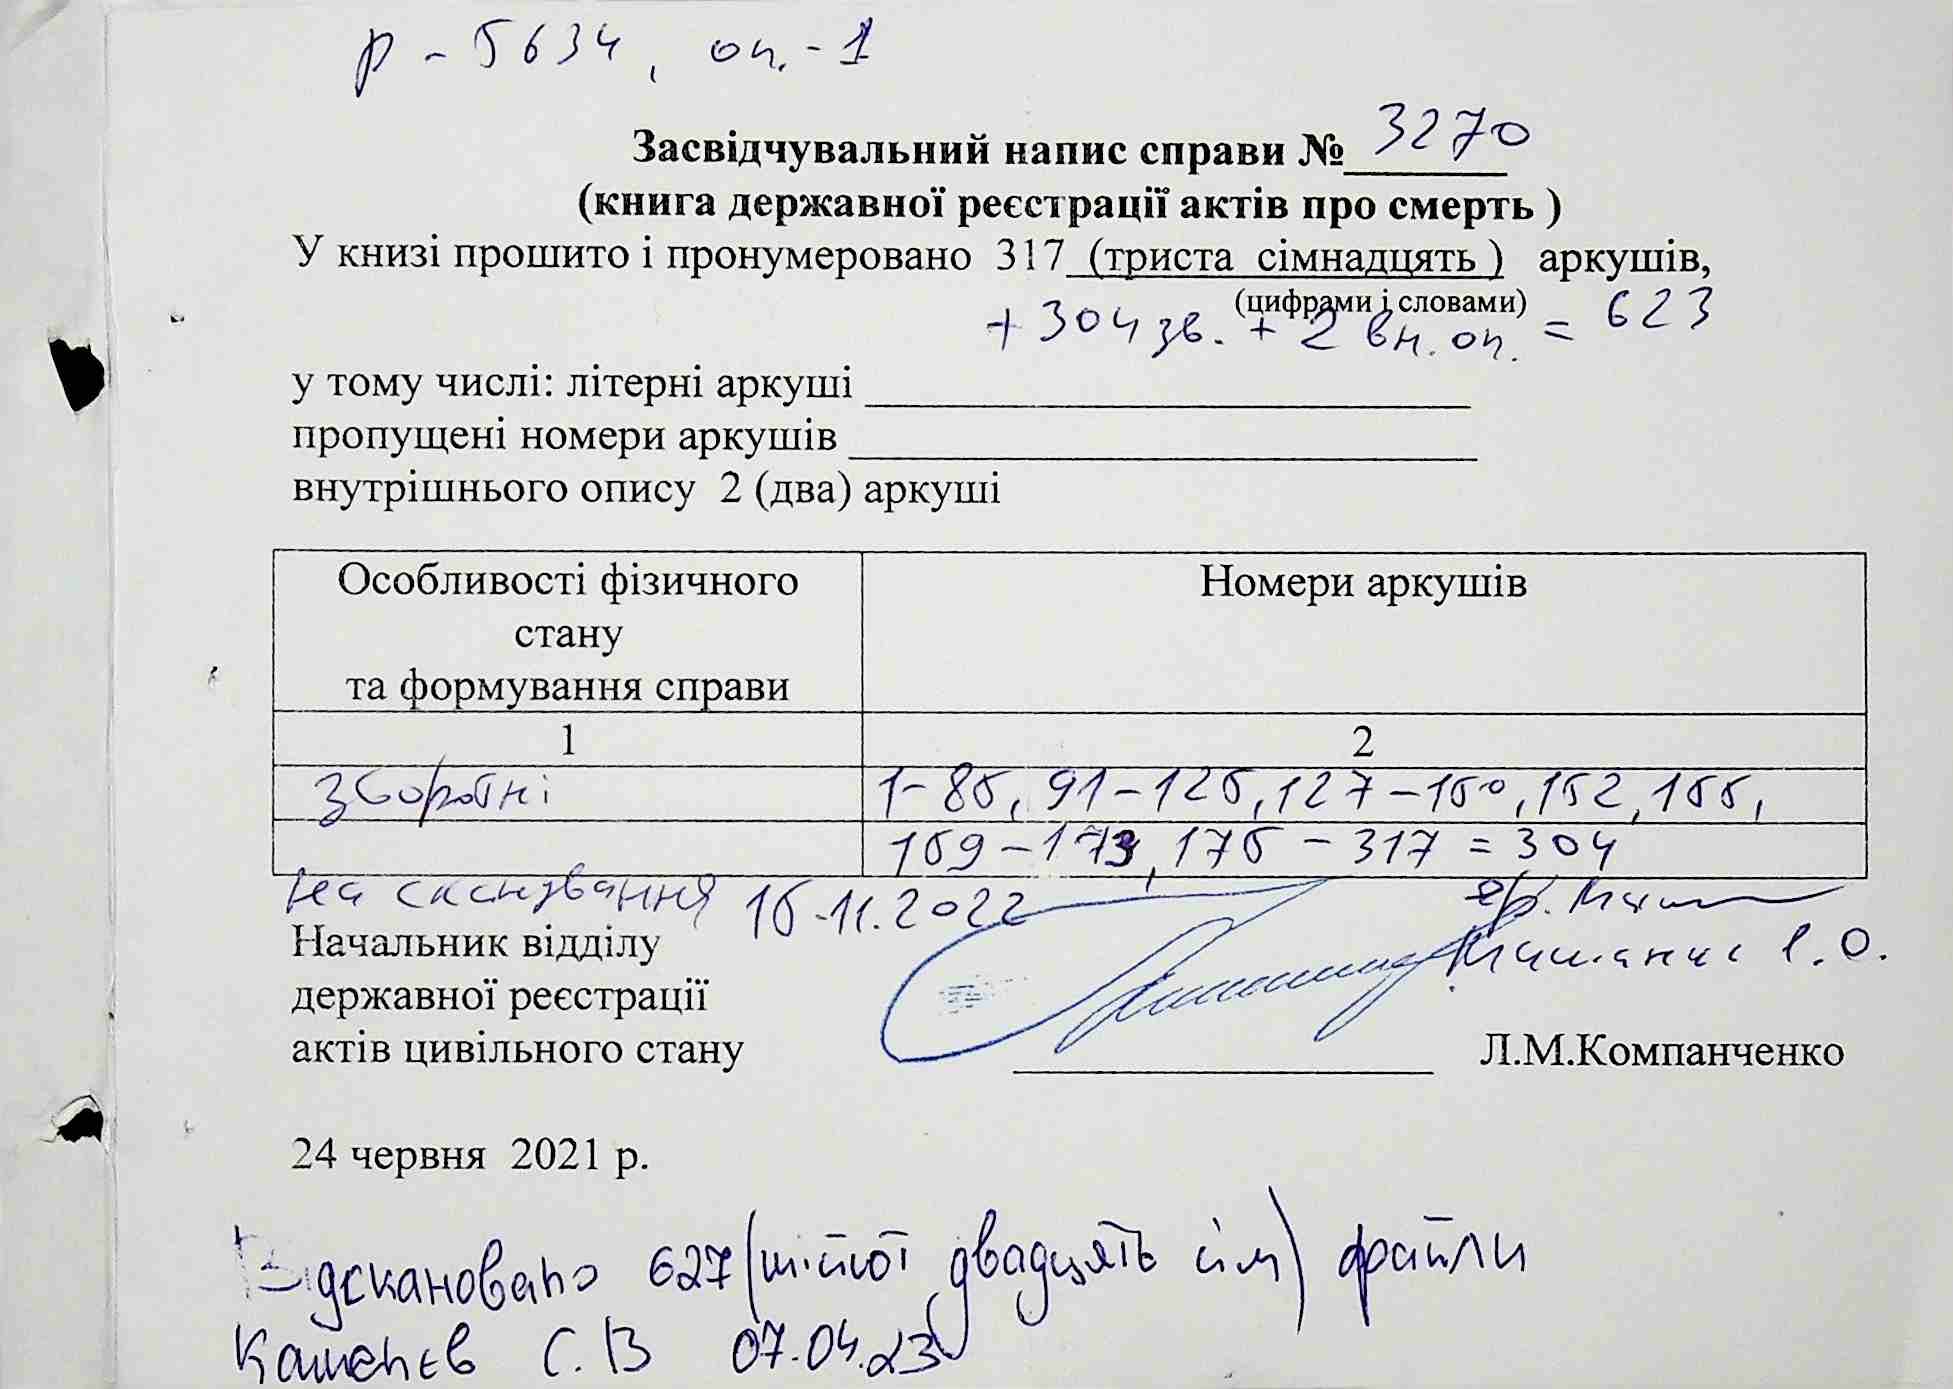 р - 5634, оп. - 1
Засвідчувальний напис справи № 3270
(книга державної реєстрації актів про смерть )
У книзі прошито і пронумеровано 317 (триста сімнадцять ) аркушів,
(цифрами і словами)
+ 304 зв. + 2 вн. оп. = 623
у тому числі: літерні аркуші
пропущені номери аркушів
внутрішнього опису 2 (два) аркуші
Особливості фізичного
стану
та формування справи
Номери аркушів
1
2
зворотні
1-85, 91-125, 127-150, 152, 155,
159-173, 175-317 = 304
на сканування 15.11.2022
Начальник відділу
державної реєстрації
актів цивільного стану
Л.М.Компанченко
24 червня 2021 р.
Відскановано 627 (шістсот двадцять сім) файли
С.В 07.04.23